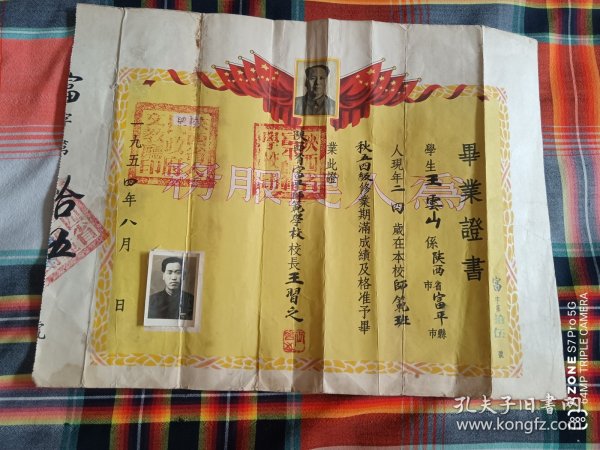 畢業證書
學生王雲山係陝西省富平縣
市 市
人現年二四歲在本校師範班
秋五四級修業期滿成績及格准予畢
業此證
校長王習之
一九五四年八月 日
為人民服務
富字第
拾五
號
孔夫子旧书网
www.kongfz.com
ZONE S7Pro 5G
64MP TRIPLE CAMERA